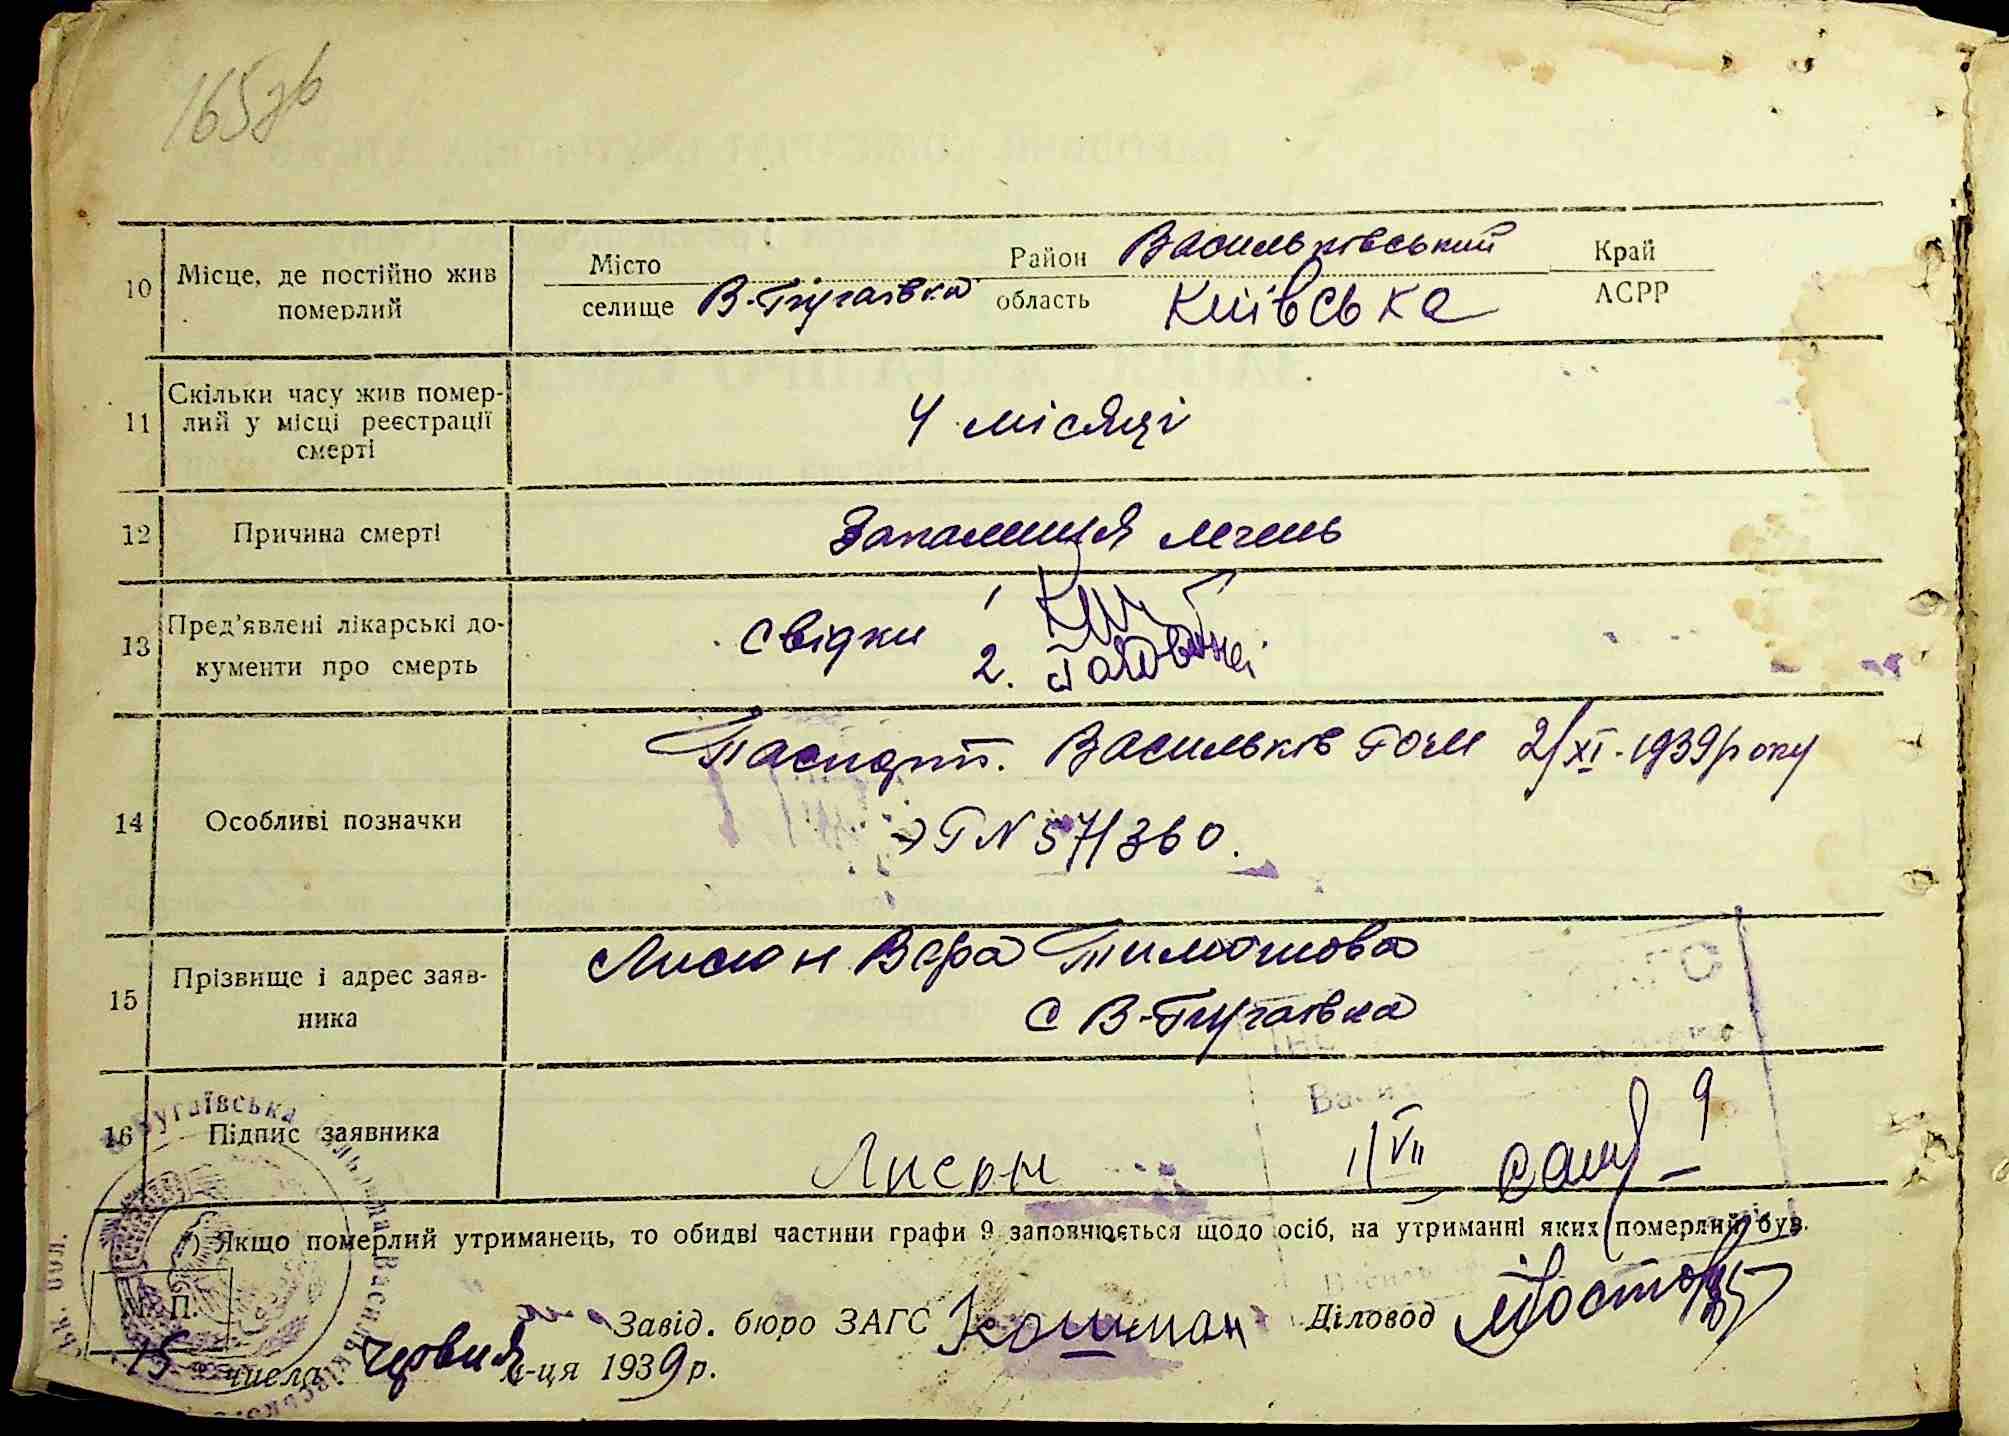 165зв
10 Місце, де постійно жив померлий
Місто Район Васильківський Край
селище В-Бугаївка область Київська АСРР
11 Скільки часу жив помер-
лий у місці реєстрації
смерті
4 місяці
12 Причина смерті
Запалення легень
13 Пред'явлені лікарські до-
кументи про смерть
Свідки 1
2.
14 Особливі позначки
Паспорт. Васильків 2/XI-1939 року
N 571360.
15 Прізвище і адрес заяв-
ника
Лисюн Вєра Тимошова
с В-Бугаївка
16 Підпис заявника
Лисюн 1/VII 9
) Якщо померлий утриманець, то обидві частини графи 9 заповнюється щодо осіб, на утриманні яких померлий був.
М. П.
Завід. бюро ЗАГС Кошман Діловод
15 числа червня м-ця 1939 р.